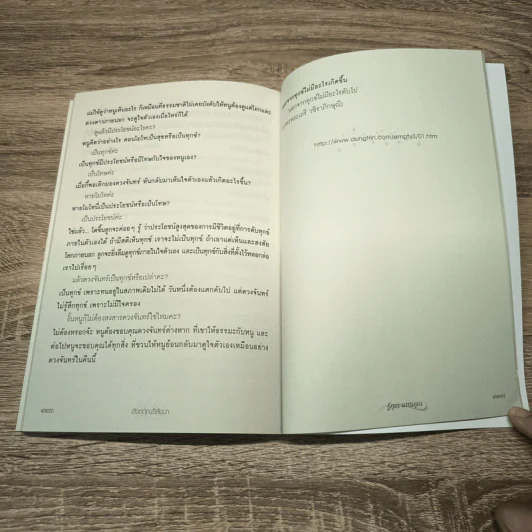 แม่ให้ดูว่าหนูเห็นอะไร ก็เหมือนที่ธรรมชาติไม่เคยบังคับให้หนูต้องดูแต่โลกและ
ดวงดาวภายนอก จะดูใจตัวเองเมื่อไหร่ก็ได้
ดูแล้วมีประโยชน์อะไรคะ?
หนูคิดว่าอย่างไร ตอนไม่โทเป็นสุขหรือเป็นทุกข์?
เป็นทุกข์ค่ะ
เป็นทุกข์มีประโยชน์หรือมีโทษกับใจของหนูเอง?
เป็นโทษค่ะ
เมื่อกี้พอเลิกมองดวงจันทร์ หันกลับมาเห็นใจตัวเองแล้วเกิดอะไรขึ้น?
หายโมโหค่ะ
หายโมโหนี่เป็นประโยชน์หรือเป็นโทษ?
เป็นประโยชน์ค่ะ
ใช่แล้ว... โตขึ้นลูกจะค่อยๆ รู้ ว่าประโยชน์สูงสุดของการมีชีวิตอยู่ที่การดับทุกข์
ภายในตัวเองได้ ถ้ามีสติเห็นทุกข์ เราจะไม่เป็นทุกข์ ถ้าเอาแต่เห็นและสงสัย
โลกภายนอก ลูกจะยิ่งลืมดูทุกข์ภายในใจตัวเอง และเป็นทุกข์กับสิ่งที่ตั้งไว้หลอกล่อ
เราไปเรื่อยๆ
แล้วดวงจันทร์เป็นทุกข์หรือเปล่าคะ?
เป็นทุกข์ เพราะทนอยู่ในสภาพเดิมไม่ได้ วันหนึ่งต้องแตกดับไป แต่ดวงจันทร์
ไม่รู้สึกทุกข์ เพราะไม่มีใจครอง
งั้นหนูก็ไม่ต้องสงสารดวงจันทร์ใช่ไหมคะ?
ไม่ต้องหรอกจ้ะ หนูต้องขอบคุณดวงจันทร์ต่างหาก ที่เขาให้ธรรมะกับหนู และ
ต่อไปหนูจะขอบคุณได้ทุกสิ่ง ที่ชวนให้หนูย้อนกลับมาดูใจตัวเองเหมือนอย่าง
ดวงจันทร์ในคืนนี้
อังคฤณวิลัยมา
นอกจากทุกข์ไม่มีอะไรเกิดขึ้น
นอกจากทุกข์ไม่มีอะไรดับไป
วชิราภิกษุณี
http://www.dungtrin.com/empty1/01.htm